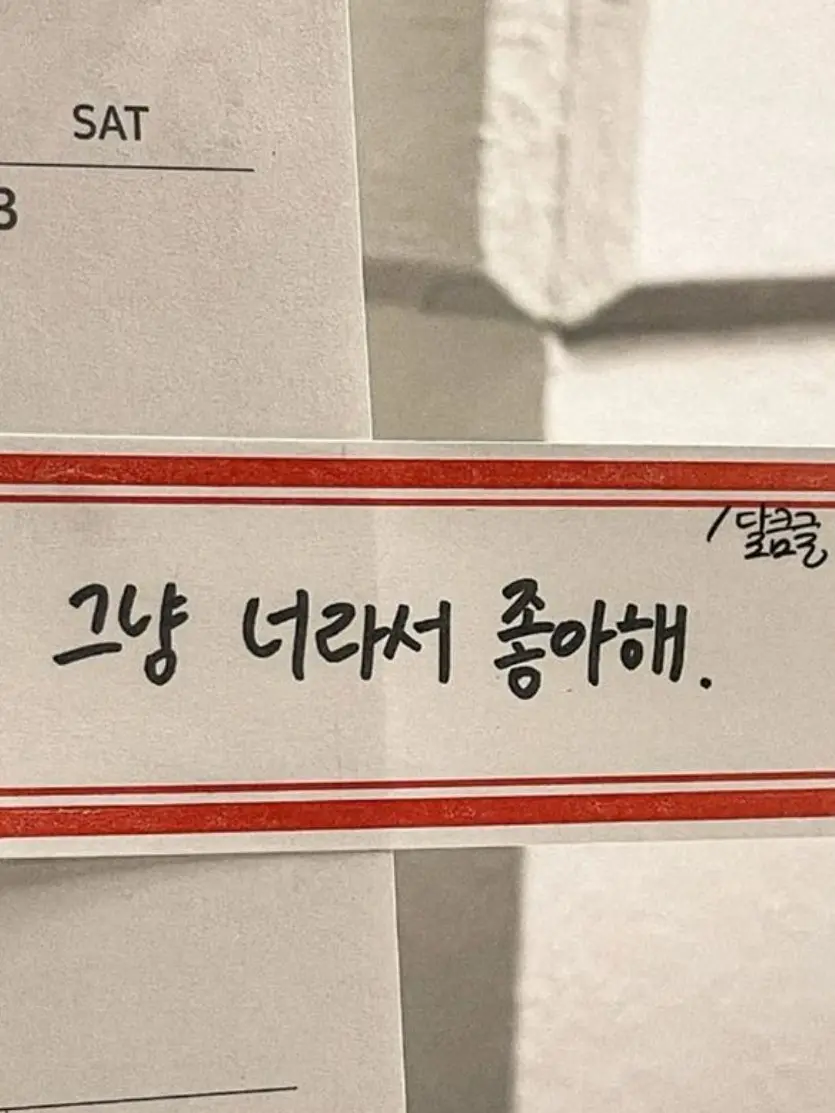 SAT
3
/달콤글
그냥 너라서 좋아해.